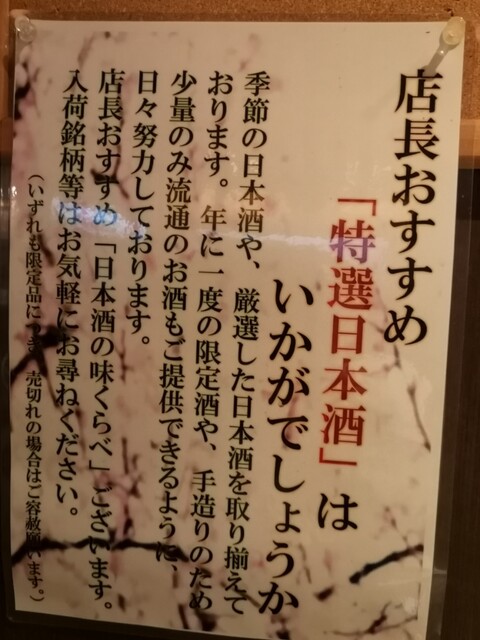 店長おすすめ
「特選日本酒」は
いかがでしょうか
季節の日本酒や、厳選した日本酒を取り揃えて
おります。年に一度の限定酒や、手造りのため
少量のみ流通のお酒もご提供できるように、
日々努力しております。
店長おすすめ「日本酒の味くらべ」ございます。
入荷銘柄等はお気軽にお尋ねください。
（いずれも限定品につき、売切れの場合はご容赦願います。）